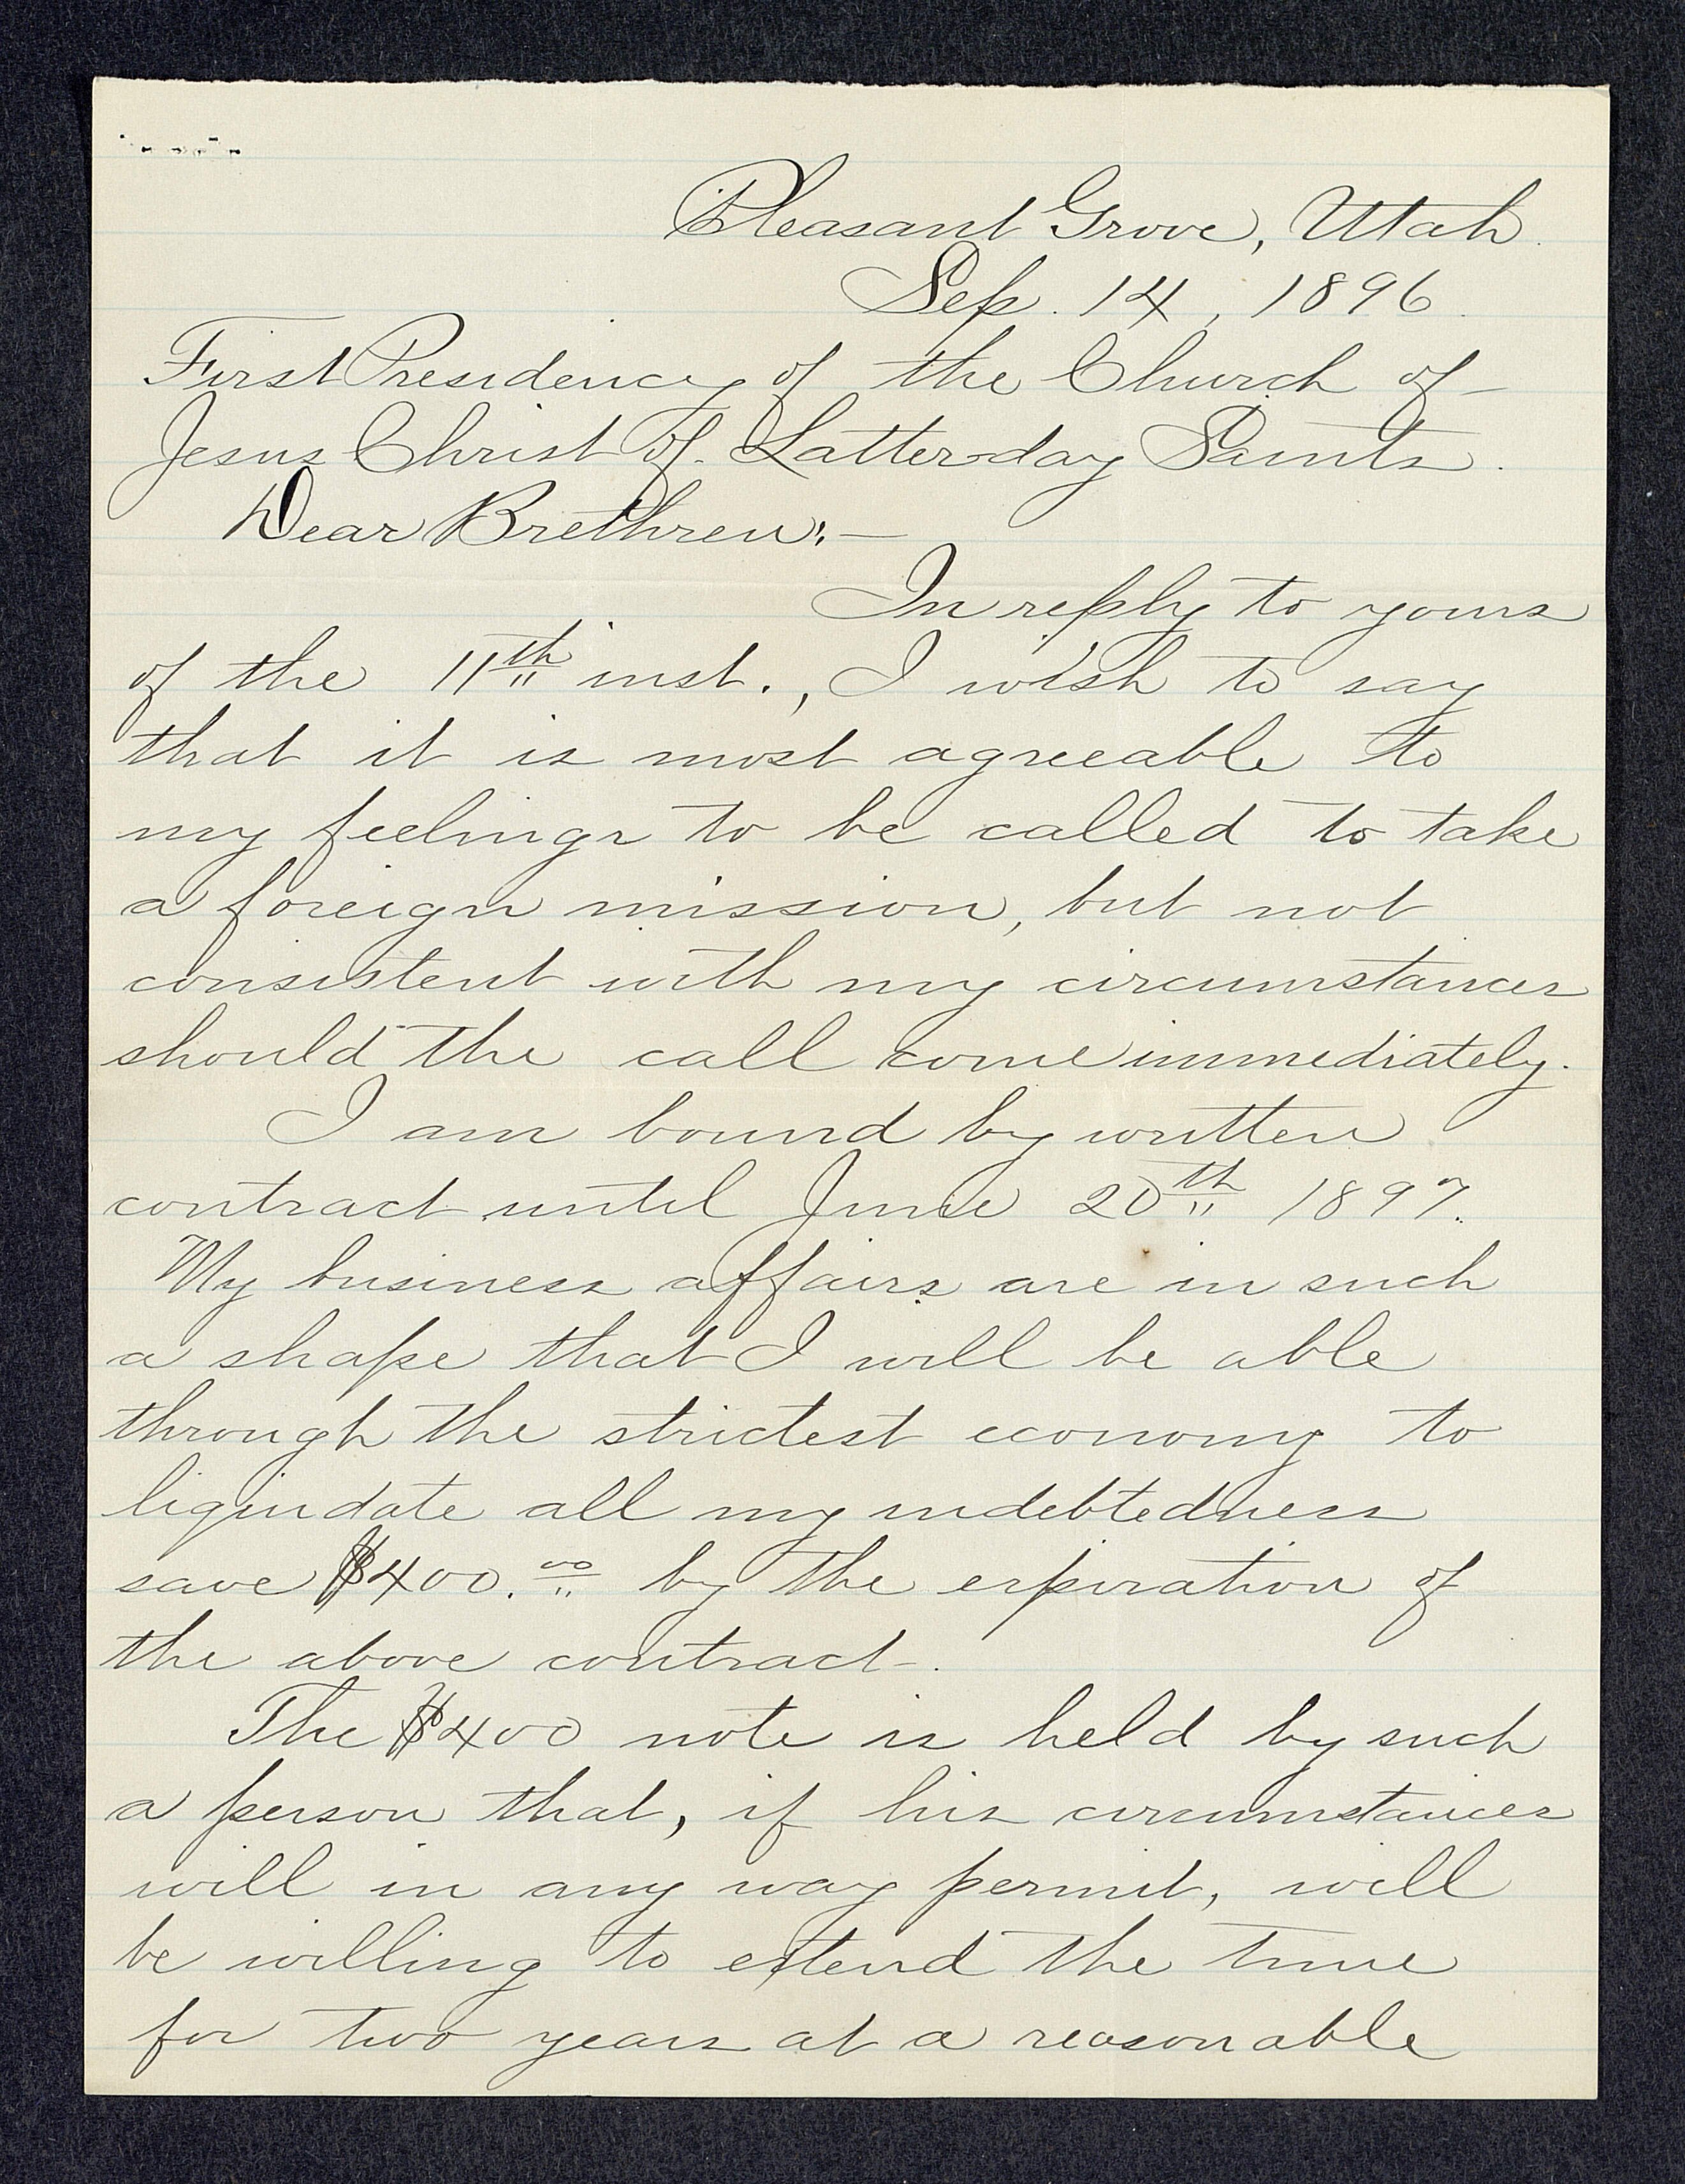 Pleasant Grove, Utah.
Sep. 14, 1896.
First Presidency of the Church of
Jesus Christ of Latter-day Saints.
Dear Brethren:—
In reply to yours
of the 11th inst., I wish to say
that it is most agreeable to
my feelings to be called to take
a foreign mission, but not
consistent with my circumstances
should the call come immediately.
I am bound by written
contract until June 20th 1897.
My business affairs are in such
a shape that I will be able
through the strictest economy to
liquidate all my indebtedness
save $400.00 by the expiration of
the above contract.
The $400 note is held by such
a person that, if his circumstances
will in any way permit, will
be willing to extend the time
for two years at a reasonable